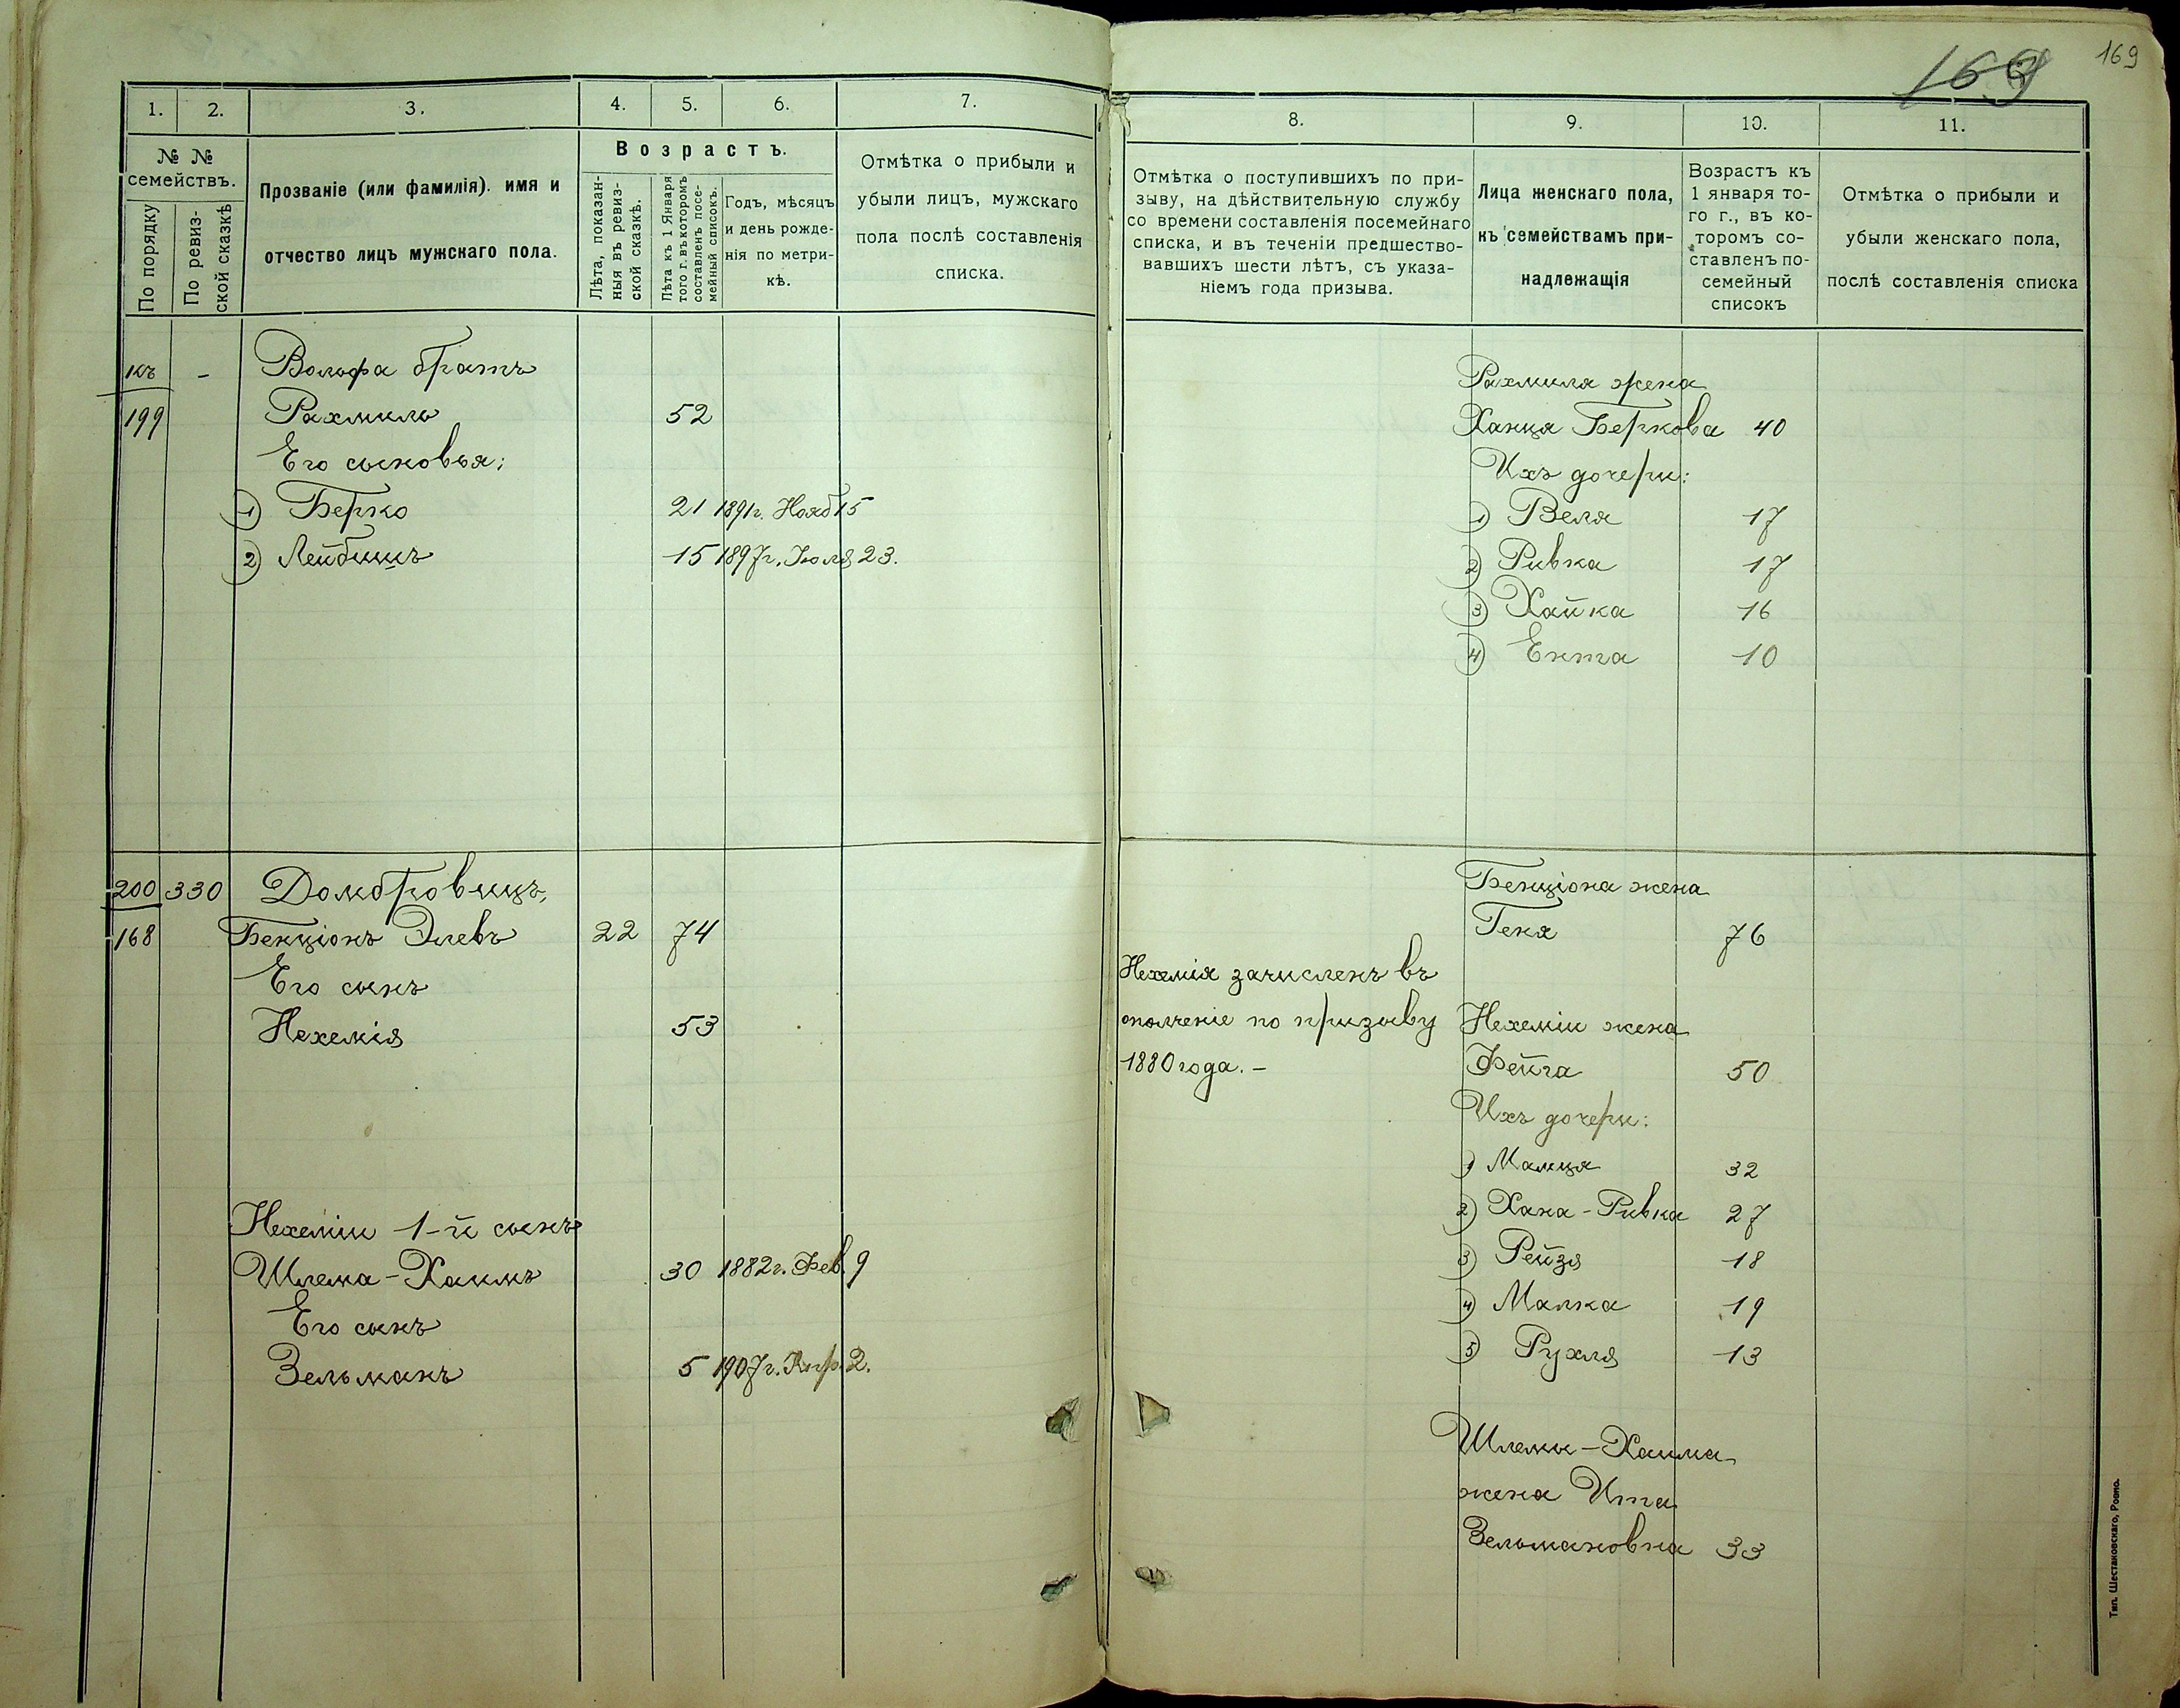 169
169
1. 2. 3. 4. 5. 6. 7.
№ №
семействъ.
По порядку
По ревиз-
ской сказкѣ
Прозваніе (или фамилія). имя и
отчество лицъ мужскаго пола.
Возрастъ.
Лѣта, показан-
ныя въ ревиз-
ской сказкѣ.
Лѣта къ 1 Января
того г. въ которомъ
составленъ посе-
мейный списокъ.
Годъ, мѣсяцъ
и день рожде-
нія по метри-
кѣ.
Отмѣтка о прибыли и
убыли лицъ, мужскаго
пола послѣ составленія
списка.
къ - Вольфа братъ
199 Рахмиль 52
Его сыновья:
1) Берко 21 1891г. Нояб 15
2) Лейбишъ 15 1897г. Іюля 23.
200 330 Домбровицъ,
168 Бенціонъ Элевъ 22 74
Его сынъ
Нехемія 53
Нехеміи 1-й сынъ
Шлема-Хаимъ 30 1882г. Фев. 9
Его сынъ
Зельманъ 5 1907г. Апр. 2.
8. 9. 10. 11.
Отмѣтка о поступившихъ по при-
зыву, на дѣйствительную службу
со времени составленія посемейнаго
списка, и въ теченіи предшество-
вавшихъ шести лѣтъ, съ указа-
ніемъ года призыва.
Лица женскаго пола,
къ семействамъ при-
надлежащія
Возрастъ къ
1 января то-
го г., въ ко-
торомъ со-
ставленъ по-
семейный
списокъ
Отмѣтка о прибыли и
убыли женскаго пола,
послѣ составленія списка
Рахмиля жена
Ханця Беркова 40
Ихъ дочери:
1) Веля 17
2) Ривка 17
3) Хайка 16
4) Ента 10
Бенціона жена
Геня 76
Нехемія зачисленъ въ
ополченіе по призыву Нехеміи жена
1880 года. - Фейга 50
Ихъ дочери:
1) Манця 32
2) Хана-Ривка 27
3) Рейзя 18
4) Малка 19
5) Рухля 13
Шлемы-Хаима
жена Ита
Зельмановна 33
Тип. Шестаковскаго, Ровно.